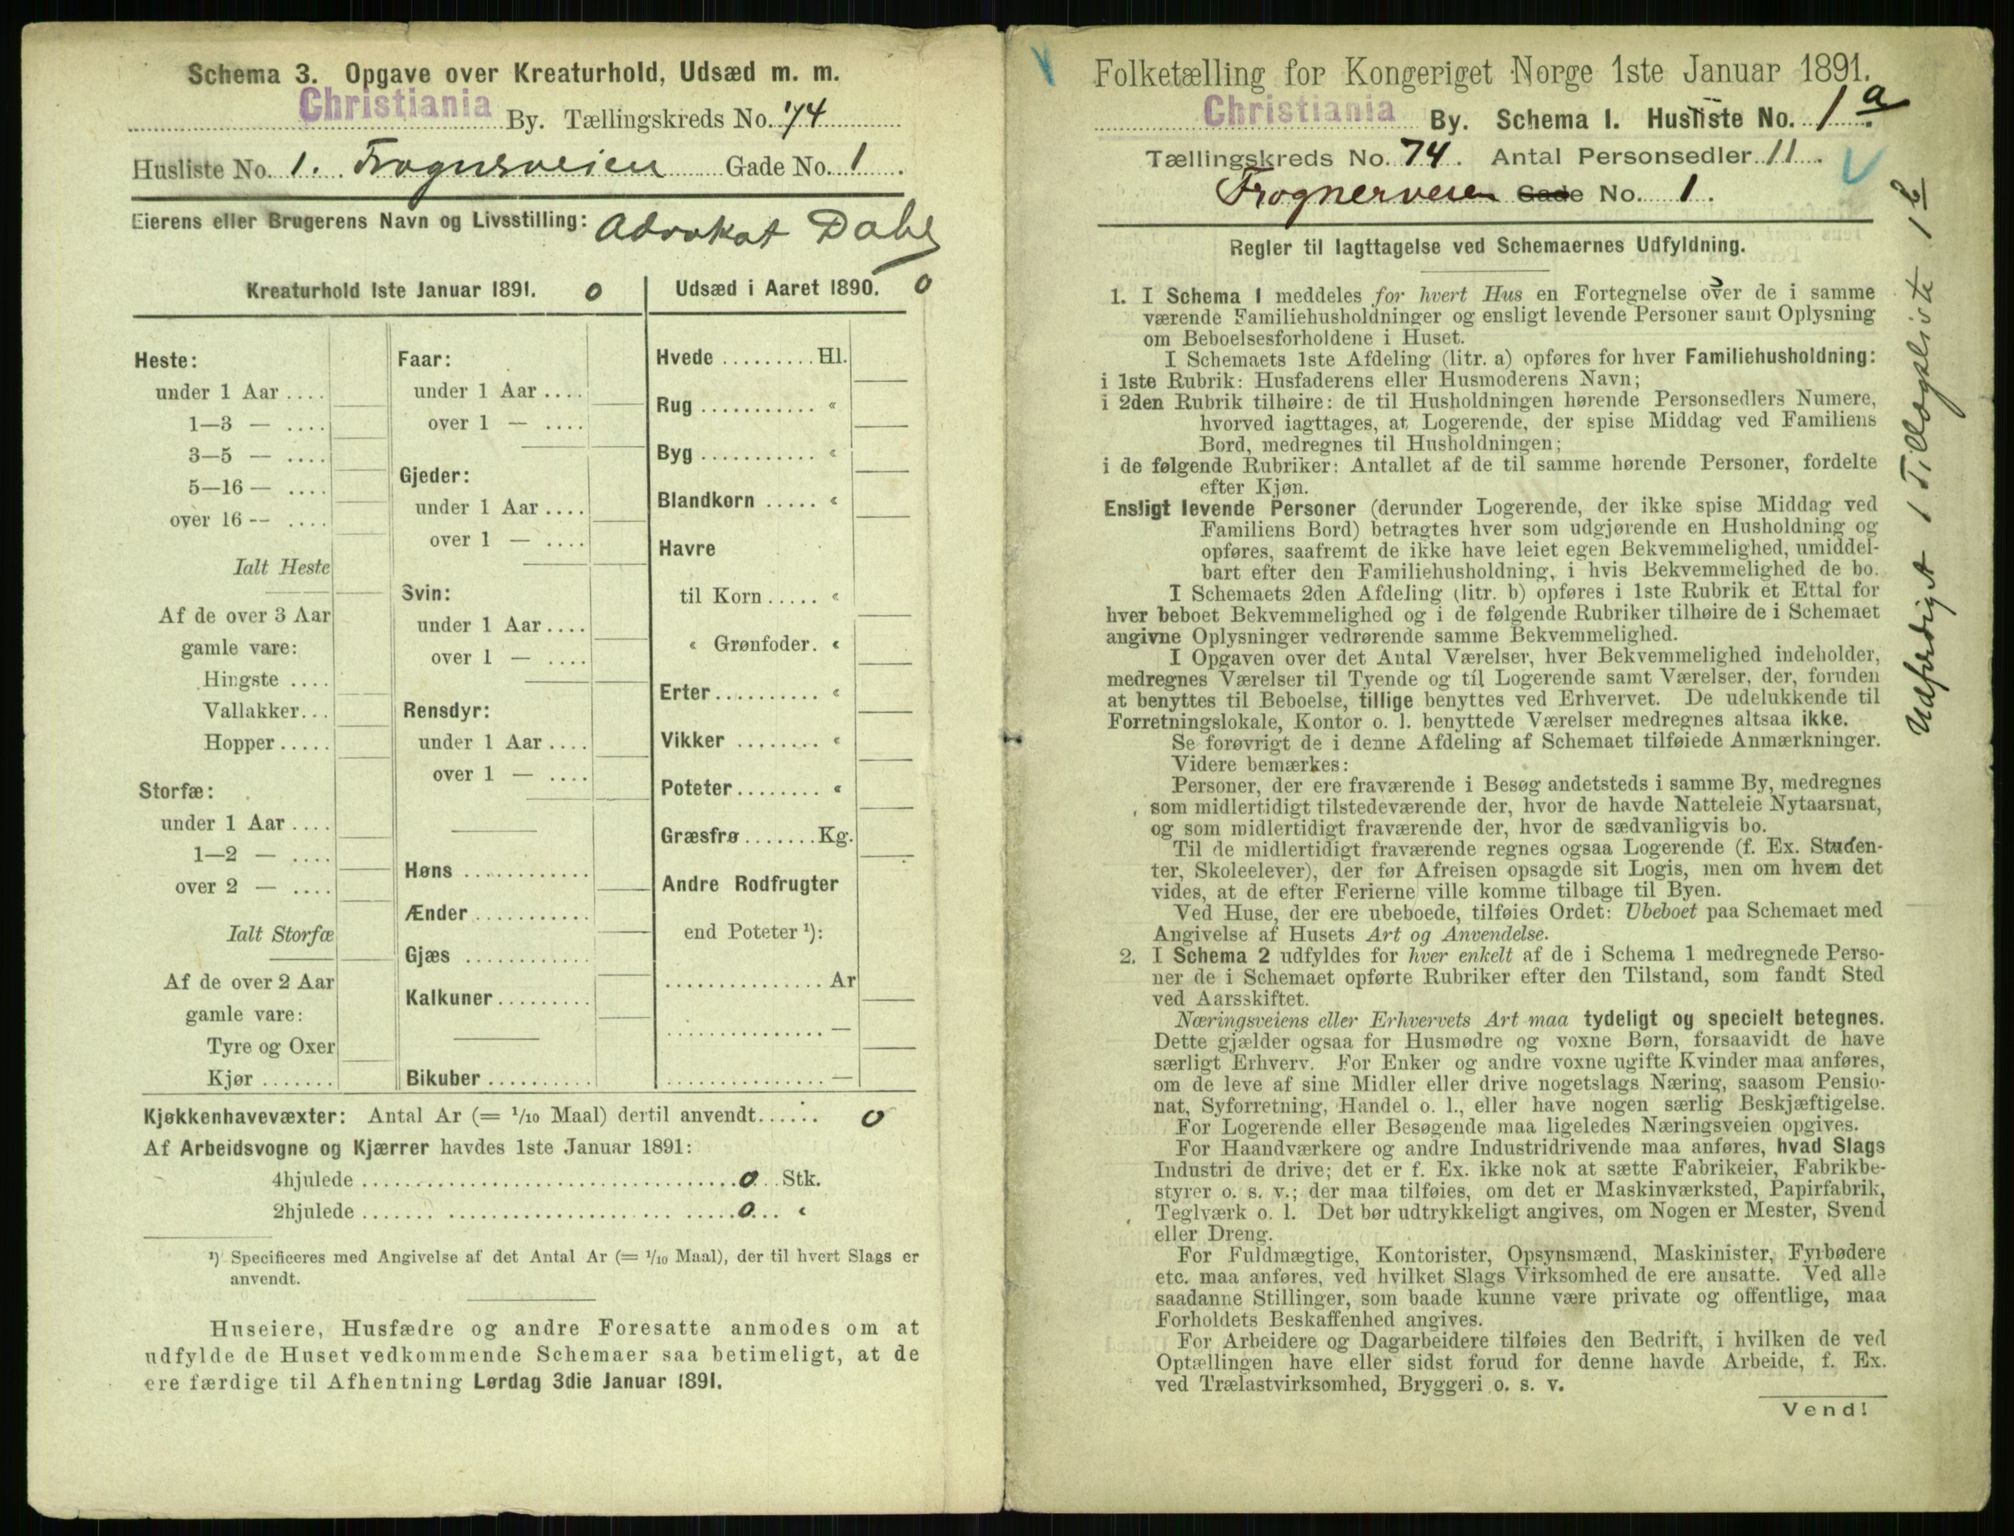 Schema 3. Opgave over Kreaturhold, Udsæd m. m.
Christiania By. Tællingskreds No. 74
Husliste No. 1. Frognerveien Gade No. 1
Eierens eller Brugerens Navn og Livsstilling: Advokat Dahl
Kreaturhold 1ste Januar 1891. 0
Heste:
under 1 Aar....
1—3 — ....
3—5 — ....
5—16 — ....
over 16 -- ....
Ialt Heste
Af de over 3 Aar
gamle vare:
Hingste ....
Vallakker...
Hopper.....
Storfæ:
under 1 Aar....
1—2 — ....
over 2 — ....
Ialt Storfæ
Af de over 2 Aar
gamle vare:
Tyre og Oxer
Kjør.......
Faar:
under 1 Aar....
over 1 — ....
Gjeder:
under 1 Aar....
over 1 — ....
Svin:
under 1 Aar....
over 1 — ....
Rensdyr:
under 1 Aar....
over 1 — ....
Høns............
Ænder...........
Gjæs............
Kalkuner.........
Bikuber..........
Udsæd i Aaret 1890. 0
Hvede.........Hl.
Rug........... «
Byg........... «
Blandkorn..... «
Havre
til Korn..... «
« Grønfoder. «
Erter......... «
Vikker........ «
Poteter........ «
Græsfrø.......Kg.
Andre Rodfrugter
end Poteter ¹):
...............Ar
............... —
............... —
Kjøkkenhavevæxter: Antal Ar (= 1/10 Maal) dertil anvendt...... 0
Af Arbeidsvogne og Kjærrer havdes 1ste Januar 1891:
4hjulede................................0...Stk.
2hjulede................................0... «
¹) Specificeres med Angivelse af det Antal Ar (= 1/10 Maal), der til hvert Slags er
anvendt.
Huseiere, Husfædre og andre Foresatte anmodes om at
udfylde de Huset vedkommende Schemaer saa betimeligt, at de
ere færdige til Afhentning Lørdag 3die Januar 1891.
Folketælling for Kongeriget Norge 1ste Januar 1891.
Christiania By. Schema 1. Husliste No. 1a
Tællingskreds No. 74. Antal Personsedler 11.
Frognerveien Gade No. 1.
Regler til Iagttagelse ved Schemaernes Udfyldning.
1. I Schema 1 meddeles for hvert Hus en Fortegnelse over de i samme
værende Familiehusholdninger og ensligt levende Personer samt Oplysning
om Beboelsesforholdene i Huset.
I Schemaets 1ste Afdeling (litr. a) opføres for hver Familiehusholdning:
i 1ste Rubrik: Husfaderens eller Husmoderens Navn;
i 2den Rubrik tilhøire: de til Husholdningen hørende Personsedlers Numere,
hvorved iagttages, at Logerende, der spise Middag ved Familiens
Bord, medregnes til Husholdningen;
i de følgende Rubriker: Antallet af de til samme hørende Personer, fordelte
efter Kjøn.
Ensligt levende Personer (derunder Logerende, der ikke spise Middag ved
Familiens Bord) betragtes hver som udgjørende en Husholdning og
opføres, saafremt de ikke have leiet egen Bekvemmelighed, umiddel-
bart efter den Familiehusholdning, i hvis Bekvemmelighed de bo.
I Schemaets 2den Afdeling (litr. b) opføres i 1ste Rubrik et Ettal for
hver beboet Bekvemmelighed og i de følgende Rubriker tilhøire de i Schemaet
angivne Oplysninger vedrørende samme Bekvemmelighed.
I Opgaven over det Antal Værelser, hver Bekvemmelighed indeholder,
medregnes Værelser til Tyende og til Logerende samt Værelser, der, foruden
at benyttes til Beboelse, tillige benyttes ved Erhvervet. De udelukkende til
Forretningslokale, Kontor o. l. benyttede Værelser medregnes altsaa ikke.
Se forøvrigt de i denne Afdeling af Schemaet tilføiede Anmærkninger.
Videre bemærkes:
Personer, der ere fraværende i Besøg andetsteds i samme By, medregnes
som midlertidigt tilstedeværende der, hvor de havde Natteleie Nytaarsnat,
og som midlertidigt fraværende der, hvor de sædvanligvis bo.
Til de midlertidigt fraværende regnes ogsaa Logerende (f. Ex. Studen-
ter, Skoleelever), der før Afreisen opsagde sit Logis, men om hvem det
vides, at de efter Ferierne ville komme tilbage til Byen.
Ved Huse, der ere ubeboede, tilføies Ordet: Ubeboet paa Schemaet med
Angivelse af Husets Art og Anvendelse.
2. I Schema 2 udfyldes for hver enkelt af de i Schema 1 medregnede Perso-
ner de i Schemaet opførte Rubriker efter den Tilstand, som fandt Sted
ved Aarsskiftet.
Næringsveiens eller Erhvervets Art maa tydeligt og specielt betegnes.
Dette gjælder ogsaa for Husmødre og voxne Børn, forsaavidt de have
særligt Erhverv. For Enker og andre voxne ugifte Kvinder maa anføres,
om de leve af sine Midler eller drive nogetslags Næring, saasom Pensio-
nat, Syforretning, Handel o. l., eller have nogen særlig Beskjæftigelse.
For Logerende eller Besøgende maa ligeledes Næringsveien opgives.
For Haandværkere og andre Industridrivende maa anføres, hvad Slags
Industri de drive; det er f. Ex. ikke nok at sætte Fabrikeier, Fabrikbe-
styrer o. s. v.; der maa tilføies, om det er Maskinværksted, Papirfabrik,
Teglværk o. l. Det bør udtrykkeligt angives, om Nogen er Mester, Svend
eller Dreng.
For Fuldmægtige, Kontorister, Opsynsmænd, Maskinister, Fyrbødere
etc. maa anføres, ved hvilket Slags Virksomhed de ere ansatte. Ved alle
saadanne Stillinger, som baade kunne være private og offentlige, maa
Forholdets Beskaffenhed angives.
For Arbeidere og Dagarbeidere tilføies den Bedrift, i hvilken de ved
Optællingen have eller sidst forud for denne havde Arbeide, f. Ex.
ved Trælastvirksomhed, Bryggeri o. s. v.
Vend!
Udfærdiget 1 Tillægsliste 1b